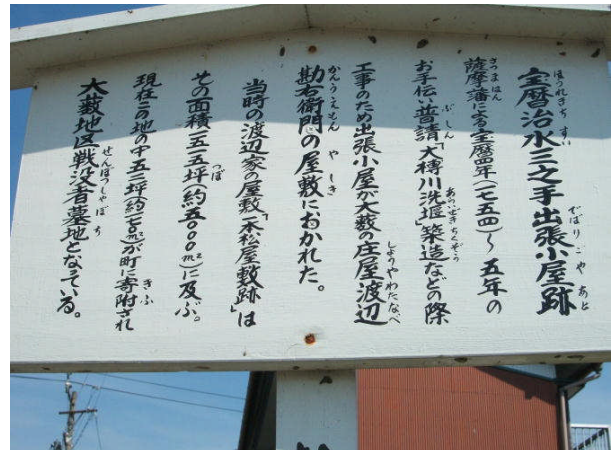 宝暦治水三之手出張小屋跡
薩摩藩による宝暦四年(一七五四)～五年の
お手伝い普請「大榑川洗堰」築造などの際
工事のため出張小屋が大薮の庄屋渡辺
勘右衛門の屋敷におかれた。
当時の渡辺家の屋敷「一本松屋敷跡」は
その面積一五一五坪(約五〇〇〇m²)に及ぶ。
現在この地の中五一三坪(約一七〇〇m²)が町に寄附され
大薮地区戦没者墓地となっている。